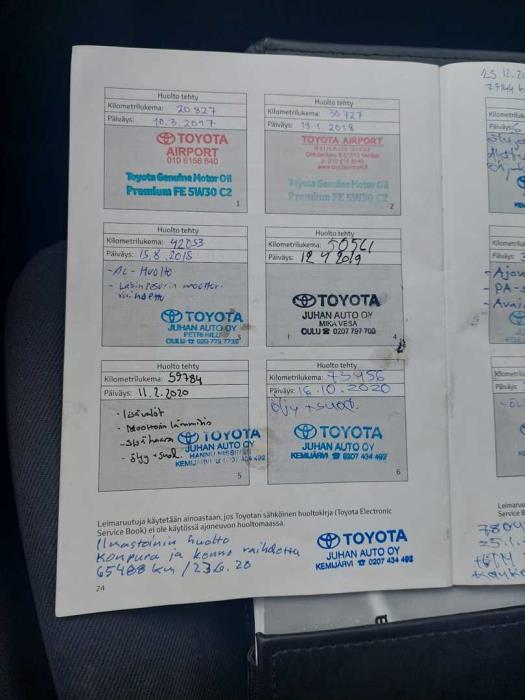 Huolto tehty
Kilometrilukema: 20 827
Päiväys: 10.3.2017
TOYOTA
AIRPORT
010 6158 640
Toyota Genuine Motor Oil
Premium FE 5W30 C2
1
Huolto tehty
Kilometrilukema: 30 727
Päiväys: 19.1.2018
TOYOTA AIRPORT
Toyota Genuine Motor Oil
Premium FE 5W30 C2
2
Huolto tehty
Kilometrilukema: 42053
Päiväys: 15.8.2018
- AC-Huolto
- Lasinpesurin moottori
vaihdettu
TOYOTA
JUHAN AUTO OY
OULU
3
Huolto tehty
Kilometrilukema: 50561
Päiväys: 12 4 2019
TOYOTA
JUHAN AUTO OY
MIKA VESA
OULU ☎ 0207 797 700
4
Huolto tehty
Kilometrilukema: 59784
Päiväys: 11.2.2020
- lisävalot
- Moottorin lämmitin
- öljy + suod.
TOYOTA
JUHAN AUTO OY
KEMIJÄRVI ☎ 0207 434 492
5
Huolto tehty
Kilometrilukema: 73456
Päiväys: 16.10.2020
öljy + suod.
TOYOTA
JUHAN AUTO OY
KEMIJÄRVI ☎ 0207 434 492
6
Leimaruutuja käytetään ainoastaan, jos Toyotan sähköinen huoltokirja (Toyota Electronic
Service Book) ei ole käytössä ajoneuvon huoltomaassa.
Ilmastoinin huolto
Konpura ja kenno vaihdettu
65488 km / 23.6.20
TOYOTA
JUHAN AUTO OY
KEMIJÄRVI ☎ 0207 434 492
24